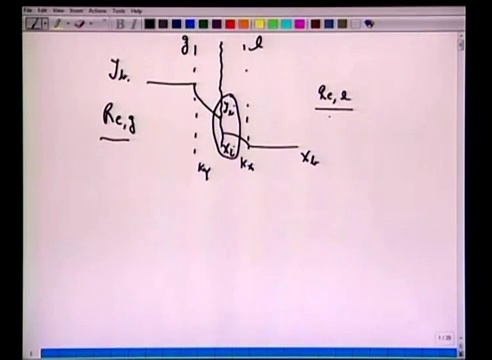 File Edit View Insert Actions Tools Help
B I
g l
y_b
Re,g
Re,l
y_i
x_i
x_b
k_y k_x
1/28